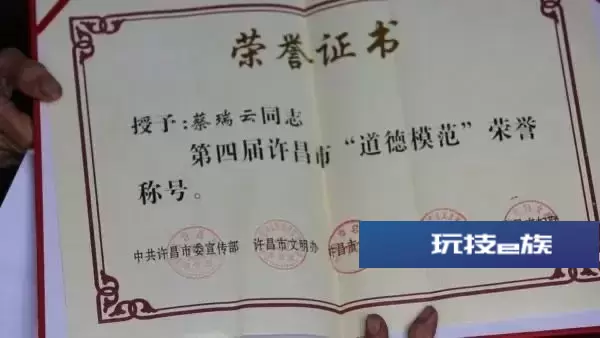 荣誉证书
授予:蔡瑞云同志
第四届许昌市“道德模范”荣誉
称号。
中共许昌市委宣传部 许昌市文明办 许昌
玩技e族